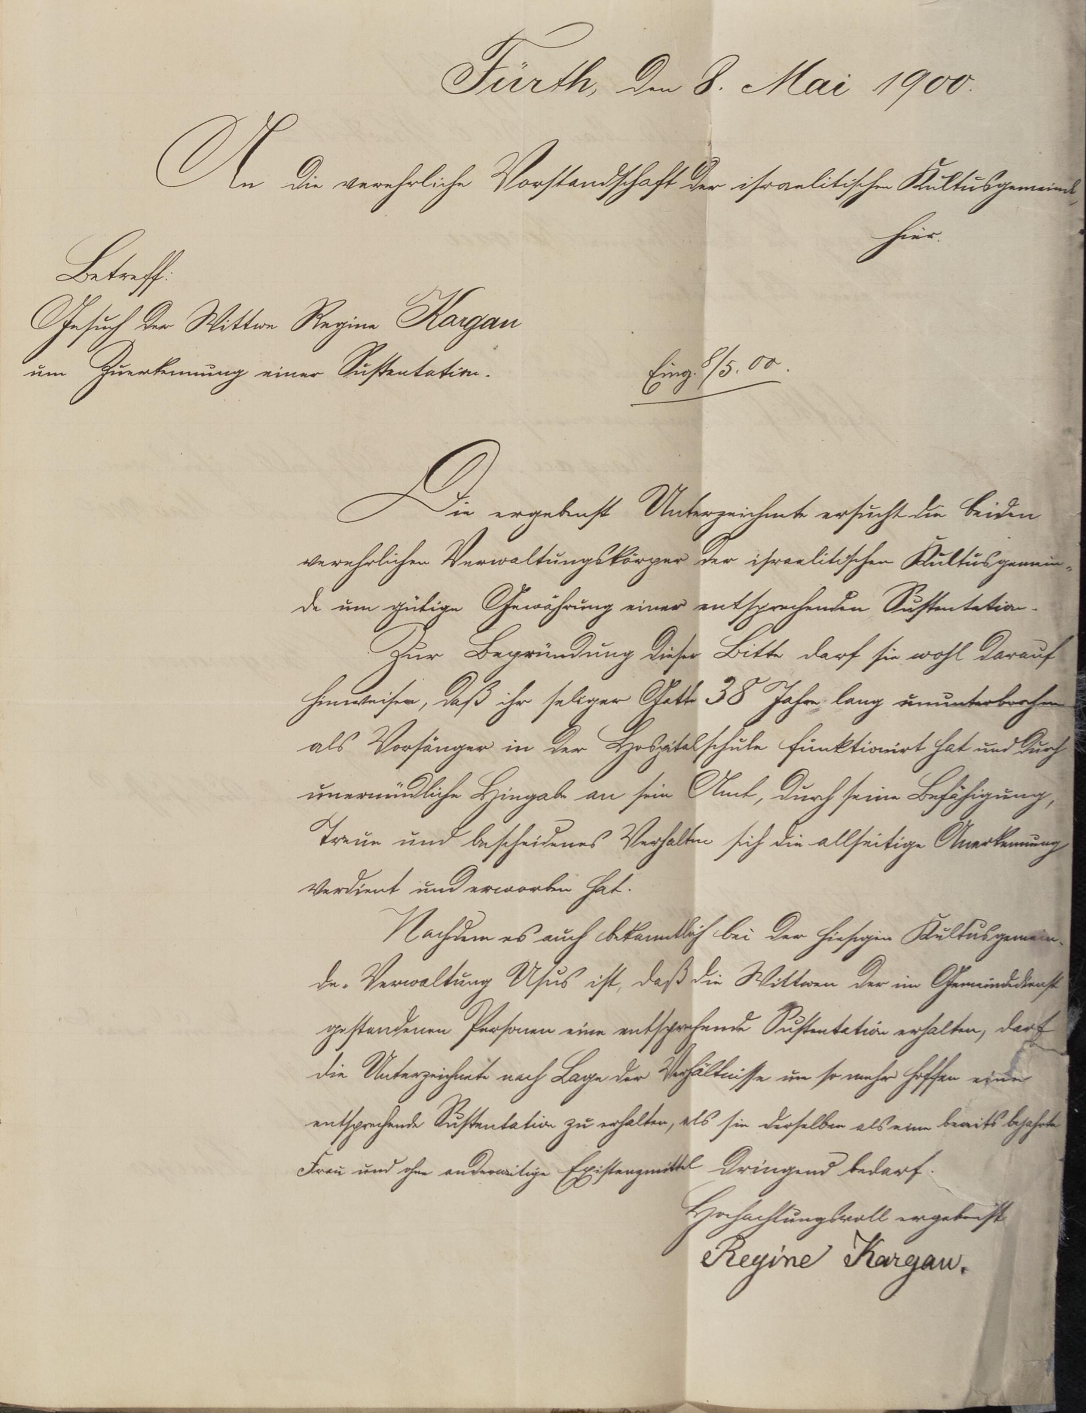 Fürth, den 8. Mai 1900.
An die verehrliche Vorstandschaft der israelitischen Kultusgemeinde,
hier.
Betreff:
Gesuch der Wittwe Regine Kargau
um Zuerkennung einer Sustentation.
Eing. 8/5. 00.
Die ergebenst Unterzeichnete ersucht die beiden
verehrlichen Verwaltungskörper der israelitischen Kultusgemein-
de um gütige Gewährung einer entsprechenden Sustentation.
Zur Begründung dieser Bitte darf sie wohl darauf
hinweisen, daß ihr seliger Gatte 38 Jahre lang ununterbrochen
als Vorsänger in der Hospitalschule funktionirt hat und durch
unermüdliche Hingabe an sein Amt, durch seine Befähigung,
Treue und bescheidenes Verhalten sich die allseitige Anerkennung
verdient und erworben hat.
Nachdem es auch bekanntlich bei der hiesigen Kultusgemein-
de-Verwaltung Usus ist, daß die Wittwen der im Gemeindedienst
gestandenen Personen eine entsprechende Sustentation erhalten, darf
die Unterzeichnete nach Lage der Verhältnisse um so mehr hoffen eine
entsprechende Sustentation zu erhalten, als sie derselben als eine bereits bejahrte
Frau und ohne anderweitige Existenzmittel dringend bedarf.
Hochachtungsvoll ergebenst
Regine Kargau.